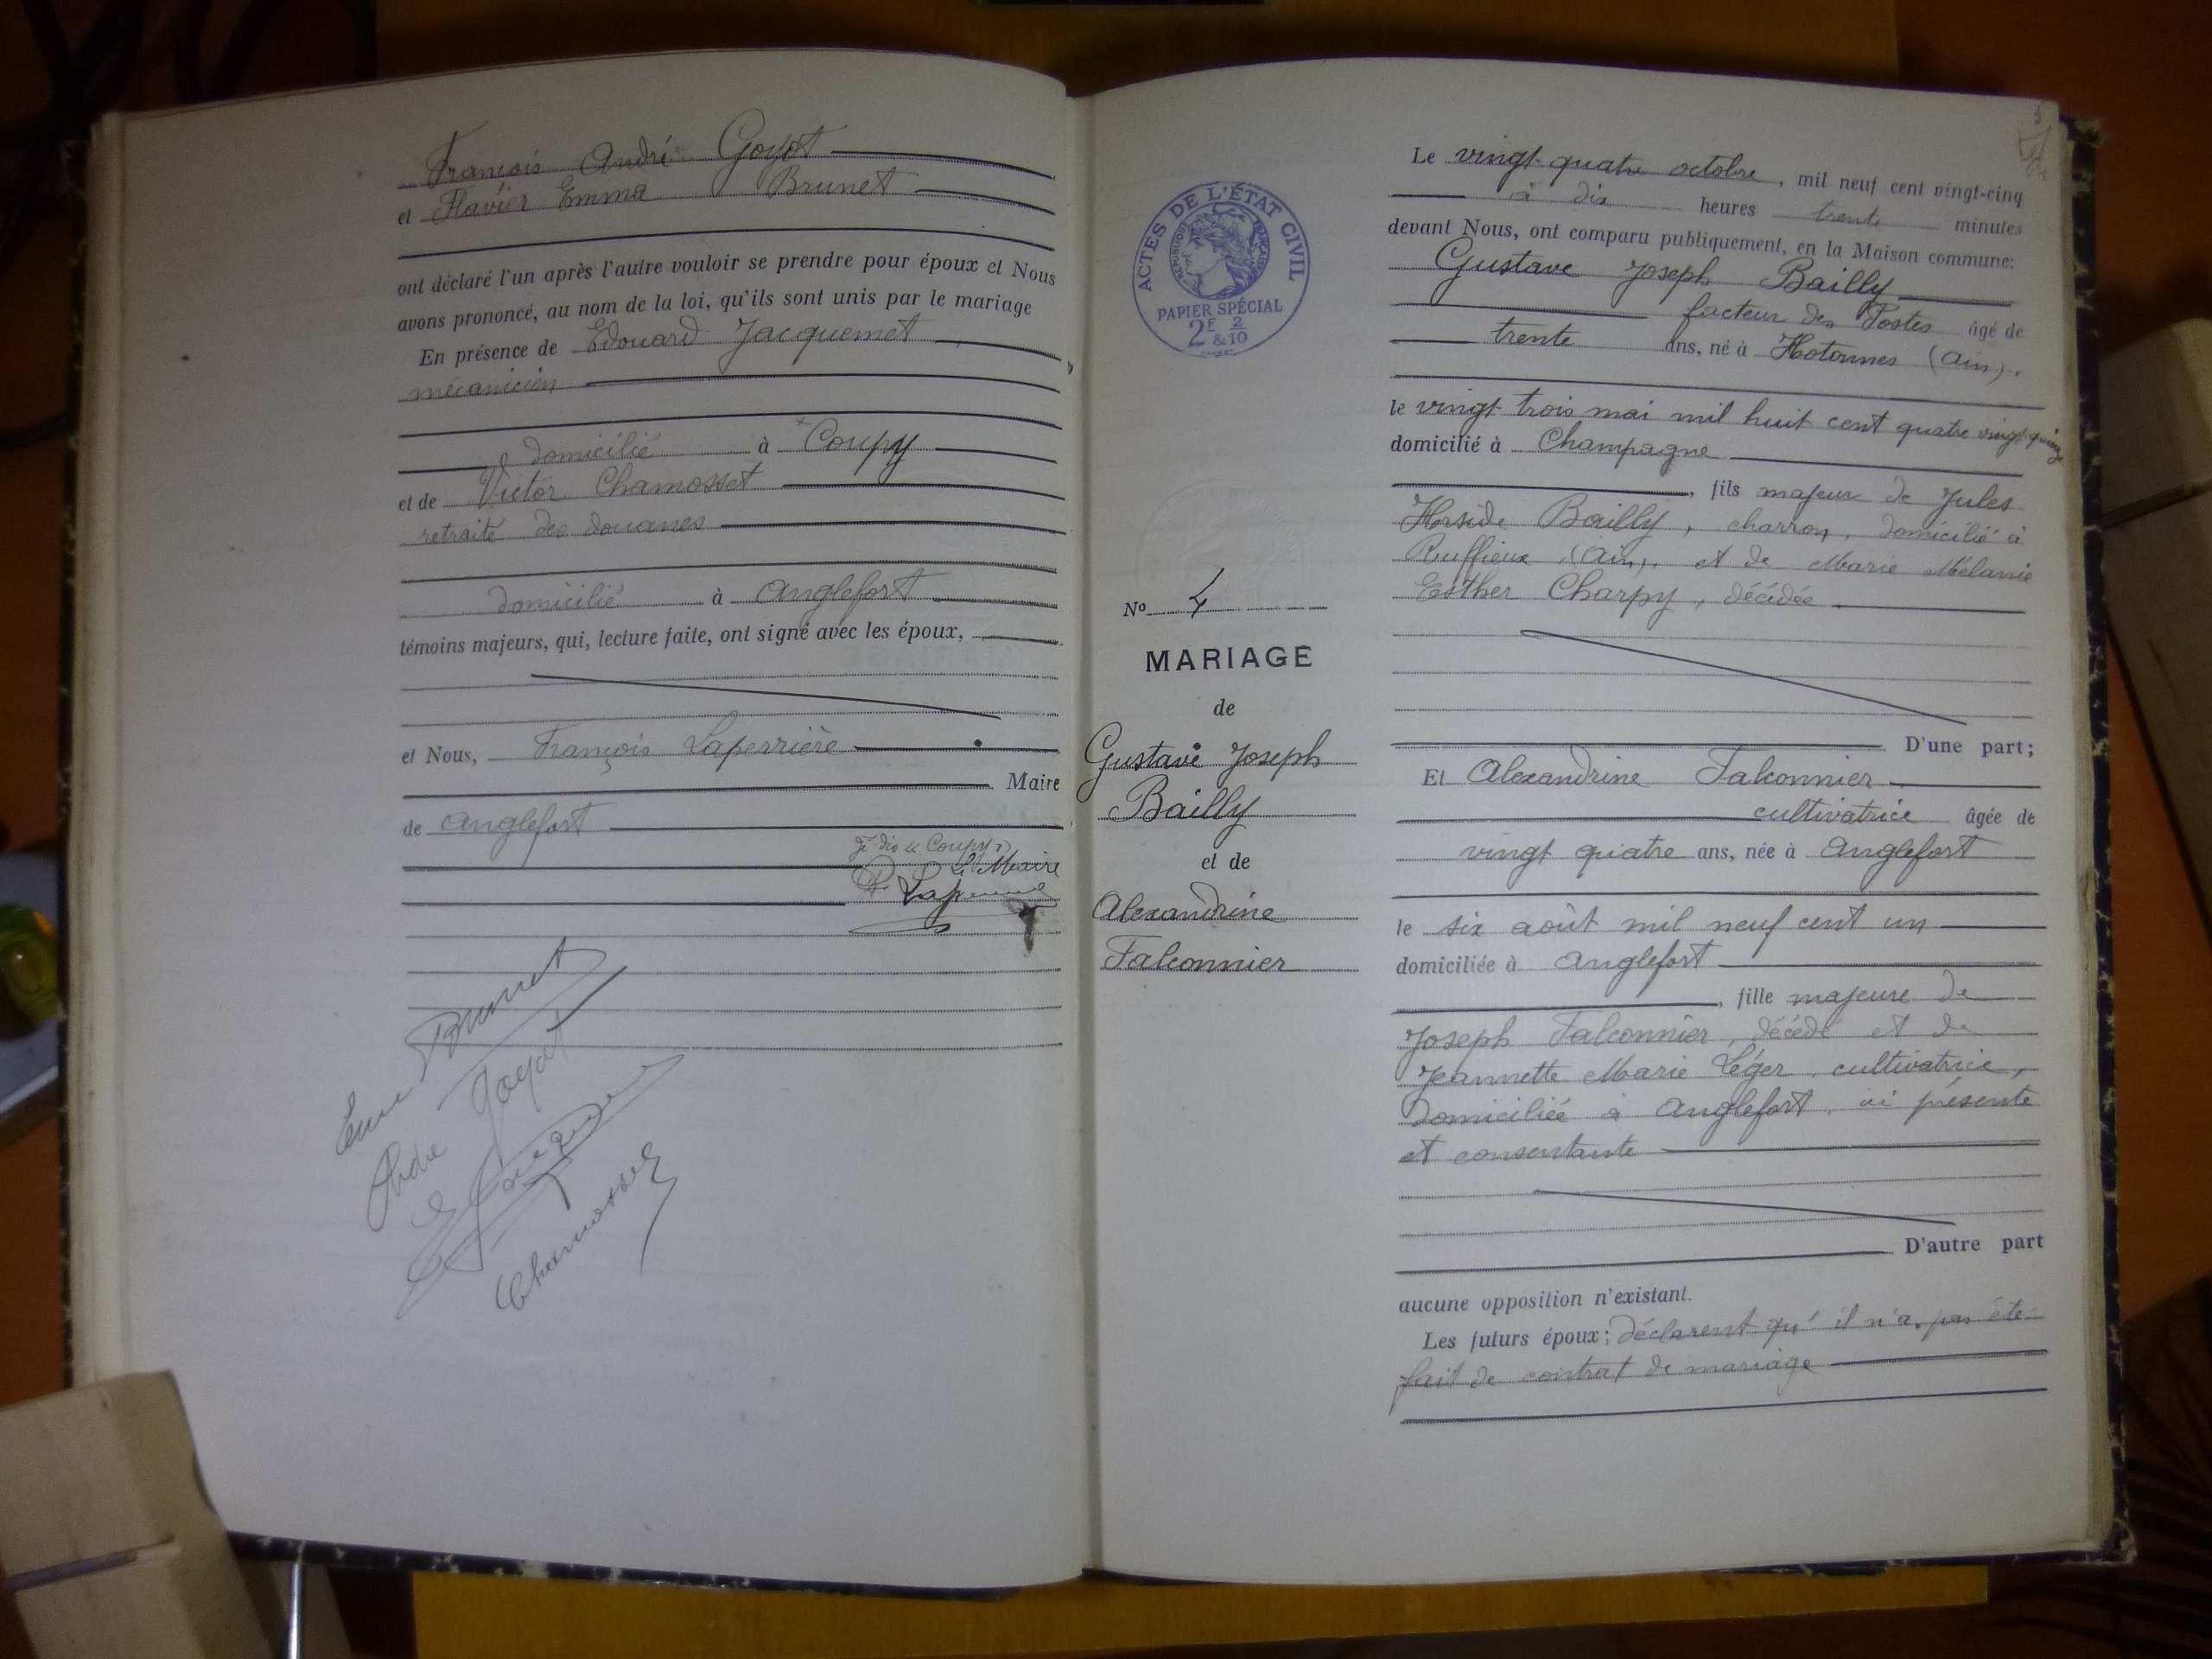 François André Goyot
et Flavier Emma Brunet
ont déclaré l'un après l'autre vouloir se prendre pour époux et Nous
avons prononcé, au nom de la loi, qu'ils sont unis par le mariage
En présence de Edouard Jacquemet
mécanicien
domicilié à Coupy
et de Victor Chamosset
retraité des douanes
domicilié à Anglefort
témoins majeurs, qui, lecture faite, ont signé avec les époux,
et Nous, François Laperrière
Maire
de Anglefort
Je dis « Coupy »
Le Maire
Brunet
André Goyot
Chamosset
ACTES DE L'ÉTAT CIVIL
RÉPUBLIQUE FRANÇAISE
PAPIER SPÉCIAL
2F 2
&10
No 4
MARIAGE
de
Gustave Joseph
Bailly
et de
Alexandrine
Falconnier
5
Le vingt-quatre octobre, mil neuf cent vingt-cinq
à dix heures trente minutes
devant Nous, ont comparu publiquement, en la Maison commune:
Gustave Joseph Bailly
facteur des Postes âgé de
trente ans, né à Hotonnes (Ain),
le vingt trois mai mil huit cent quatre vingt quinze
domicilié à Champagne
, fils majeur de Jules
Bailly, charron, domicilié à
Ruffieux (Ain), et de Marie Mélanie
Esther Charpy, décédée
D'une part;
Et Alexandrine Falconnier
cultivatrice âgée de
vingt quatre ans, née à Anglefort
le six août mil neuf cent un
domiciliée à Anglefort
, fille majeure de
Joseph Falconnier, décédé et de
Jeannette Marie Léger, cultivatrice,
domiciliée à Anglefort, ici présente
et consentante
D'autre part
aucune opposition n'existant.
Les futurs époux: déclarent qu'il n'a pas été
fait de contrat de mariage